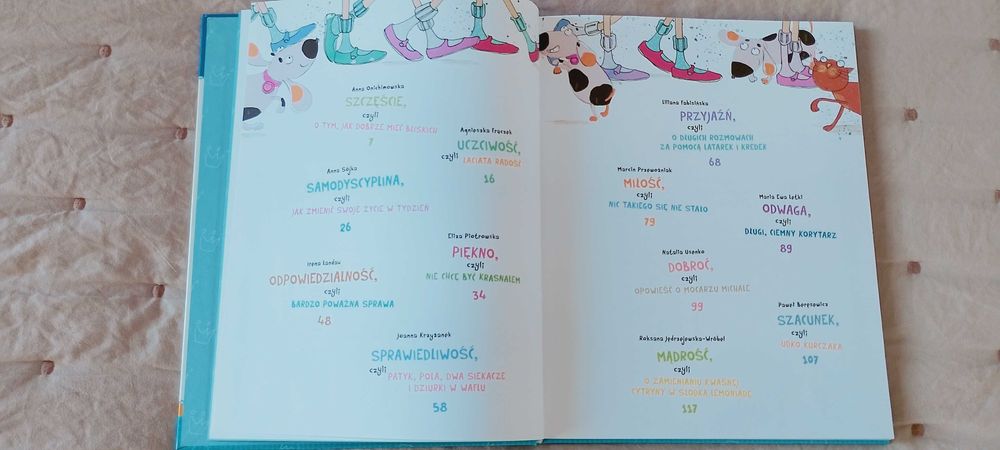 Anna Onichimowska
SZCZĘŚCIE,
czyli
O TYM, JAK DOBRZE MIEĆ BLISKICH
7
Agnieszka Frączek
UCZCIWOŚĆ,
czyli ŁACIATA RADOŚĆ
16
Anna Sójka
SAMODYSCYPLINA,
czyli
JAK ZMIENIĆ SWOJE ŻYCIE W TYDZIEŃ
26
Eliza Piotrowska
PIĘKNO,
czyli
NIE CHCĘ BYĆ KRASNALEM
34
Irena Landau
ODPOWIEDZIALNOŚĆ,
czyli
BARDZO POWAŻNA SPRAWA
48
Joanna Krzyżanek
SPRAWIEDLIWOŚĆ,
czyli PATYK, POLA, DWA SIEKACZE
I DZIURKI W WAFLU
58
Liliana Fabisińska
PRZYJAŹŃ,
czyli
O DŁUGICH ROZMOWACH
ZA POMOCĄ LATAREK I KREDEK
68
Marcin Przewoźniak
MIŁOŚĆ,
czyli
NIC TAKIEGO SIĘ NIE STAŁO
79
Maria Ewa Letki
ODWAGA,
czyli
DŁUGI, CIEMNY KORYTARZ
89
Natalia Usenko
DOBROĆ,
czyli
OPOWIEŚĆ O MOCARZU MICHALE
99
Paweł Beręsewicz
SZACUNEK,
czyli
UDKO KURCZAKA
107
Roksana Jędrzejewska-Wróbel
MĄDROŚĆ,
czyli
O ZAMIENIANIU KWAŚNEJ
CYTRYNY W SŁODKĄ LEMONIADĘ
117